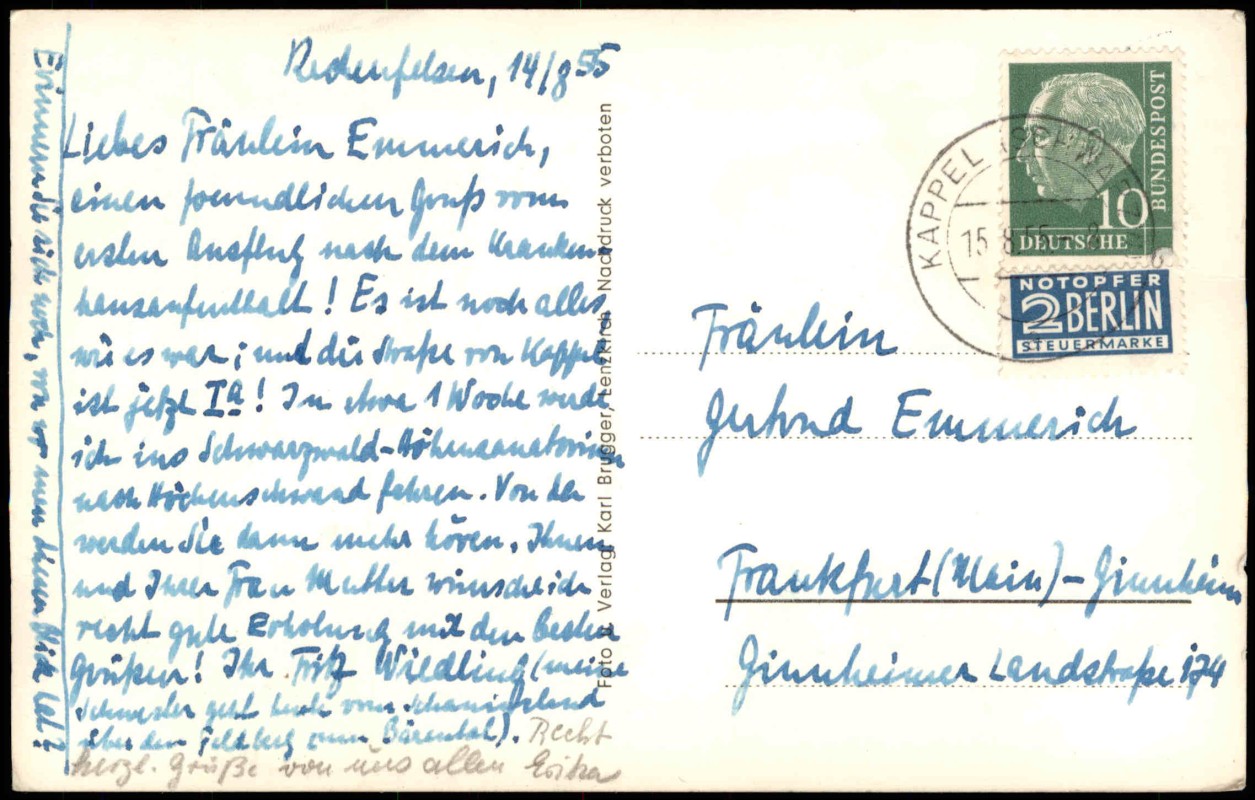 Rechenfelsen, 14/8 55
Liebes Fräulein Emmerich,
einen freundlichen Gruß vom
ersten Ausflug nach dem Kranken-
hausaufenthalt! Es ist noch alles
wie es war; und die Straße von Kappel
ist jetzt Ia! In etwa 1 Woche werde
ich ins Schwarzwald-Höhensanatorium
nach Höchenschwand fahren. Von da
werden Sie dann mehr hören. Ihnen
und Ihrer Frau Mutter wünsche ich
recht gute Erholung mit den besten
Grüßen! Ihr Fritz Wiedling (meine
Schwester geht heute vom Schauinsland
über den Feldberg zum Bärental). Recht
herzl. Grüße von uns allen Erika
Erinnern Sie sich noch, von wo man diesen Blick hat?
Foto u. Verlag: Karl Brugger, Lenzkirch Nachdruck verboten
KAPPEL (SCHWA
15.8.55-8
10
DEUTSCHE
BUNDESPOST
NOTOPFER
2 BERLIN
STEUERMARKE
Fräulein
Gertrud Emmerich
Frankfurt (Main)-Ginnheim
Ginnheimer Landstraße 174